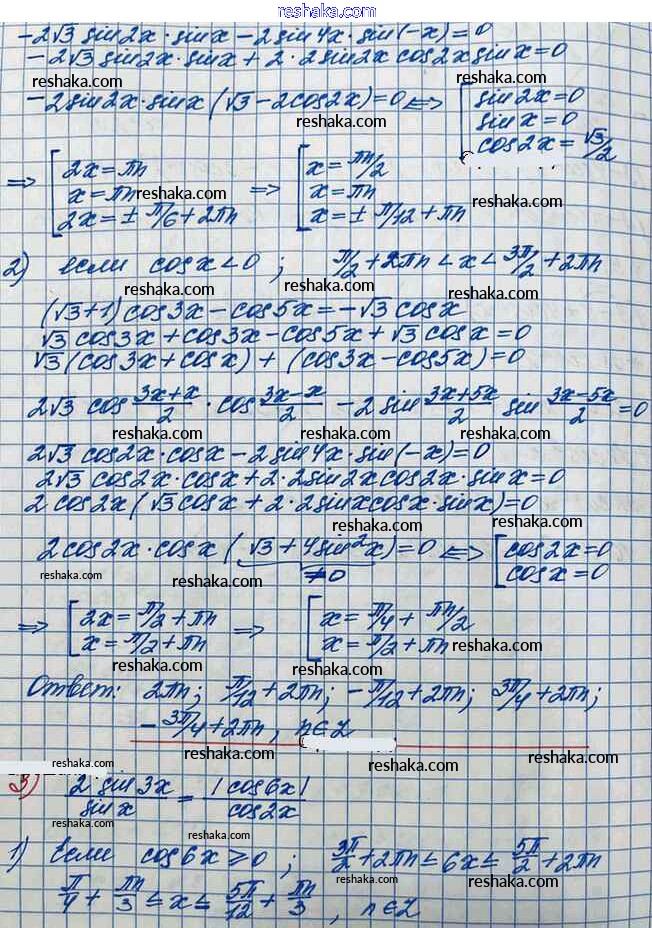 reshaka.com
-2√3 sin2x · sinx - 2sin4x · sin(-x) = 0
-2√3 sin2x · sinx + 2 · 2sin2x cos2x sinx = 0
reshaka.com reshaka.com
-2sin2x · sinx (√3 - 2cos2x) = 0 <=> [ sin2x = 0
sinx = 0
cos2x = √3/2
reshaka.com
=> [ 2x = πn
x = πn
2x = ± π/6 + 2πn
=> [ x = πn/2
x = πn
x = ± π/12 + πn
reshaka.com reshaka.com reshaka.com
2) если cosx < 0 ; π/2 + 2πn < x < 3π/2 + 2πn
reshaka.com reshaka.com
(√3+1) cos3x - cos5x = -√3 cosx
√3 cos3x + cos3x - cos5x + √3 cosx = 0
√3 (cos3x + cosx) + (cos3x - cos5x) = 0
reshaka.com reshaka.com
2√3 cos (3x+x)/2 · cos (3x-x)/2 - 2 sin (3x+5x)/2 sin (3x-5x)/2 = 0
reshaka.com reshaka.com
2√3 cos2x · cosx - 2 sin4x · sin(-x) = 0
2√3 cos2x · cosx + 2 · 2sin2x cos2x · sinx = 0
2 cos2x (√3 cosx + 2 · 2sinx cosx · sinx) = 0
reshaka.com
2cos2x · cosx (√3 + 4sin²x) = 0 <=> [ cos2x = 0
cosx = 0
≠0
reshaka.com reshaka.com reshaka.com
=> [ 2x = π/2 + πn
x = π/2 + πn
=> [ x = π/4 + πn/2
x = π/2 + πn
reshaka.com reshaka.com
Ответ: 2πn; π/12 + 2πn; -π/12 + 2πn; 3π/4 + 2πn;
reshaka.com reshaka.com
-3π/4 + 2πn, n∈Z
reshaka.com reshaka.com
3) 2 sin3x / sinx = |cos6x| / cos2x
reshaka.com reshaka.com
1) Если cos6x ≥ 0 ; 3π/2 + 2πn ≤ 6x ≤ 5π/2 + 2πn
reshaka.com reshaka.com
π/4 + πn/3 ≤ x ≤ 5π/12 + πn/3, n∈Z
reshaka.com reshaka.com